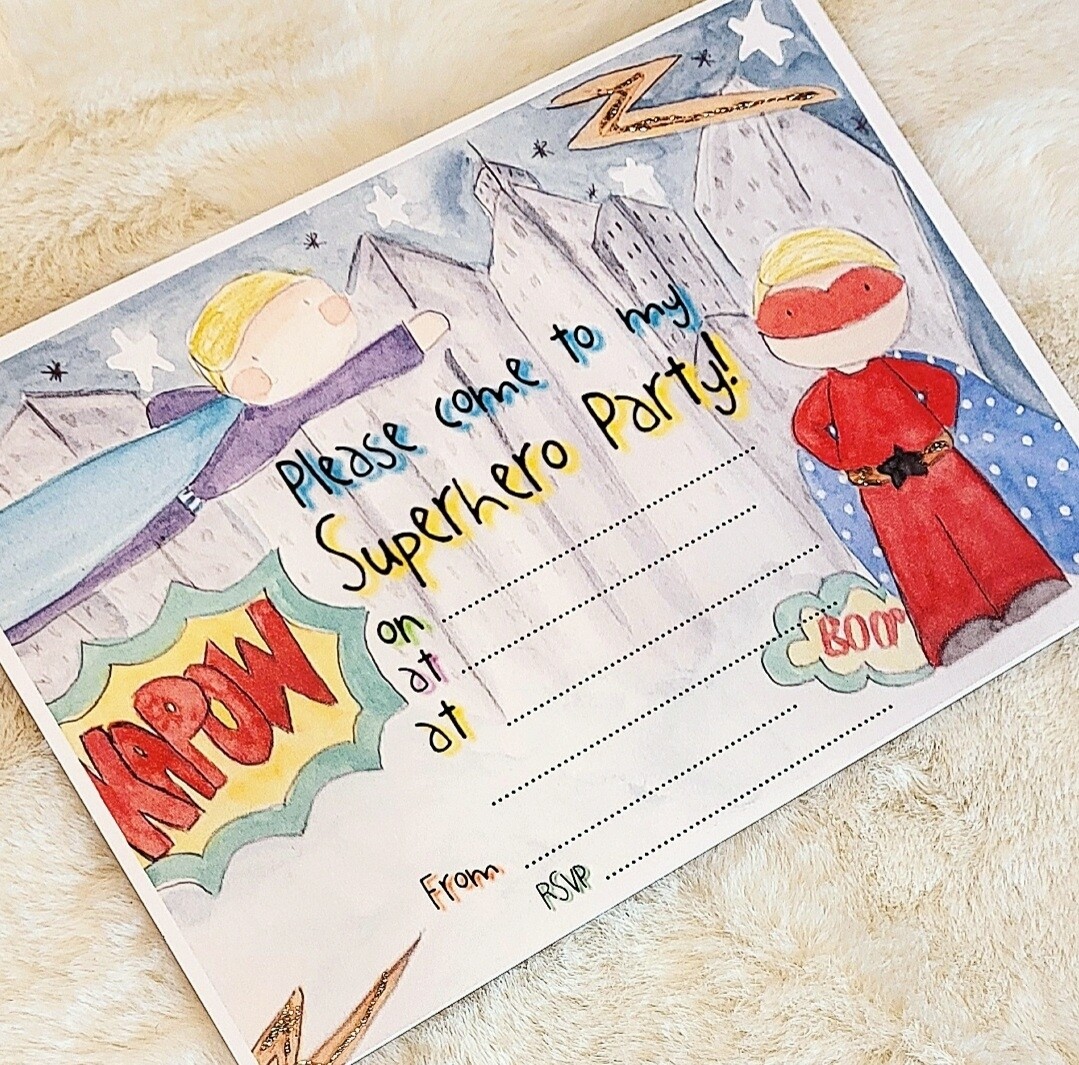 Please come to my
Superhero Party!
on
at
at
KAPOW
BOOP
From
RSVP